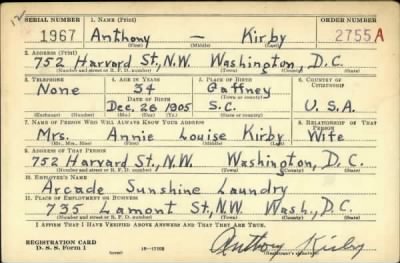 12
SERIAL NUMBER 1. NAME (Print) ORDER NUMBER
1967 Anthony — Kirby 2755A
(First) (Middle) (Last)
2. ADDRESS (Print)
752 Harvard St., N.W. Washington, D.C.
(Number and street or R. F. D. number) (Town) (County) (State)
3. TELEPHONE 4. AGE IN YEARS 5. PLACE OF BIRTH 6. COUNTRY OF CITIZENSHIP
None 34 Gaffney
(Town or county)
DATE OF BIRTH
Dec. 26 1905 S.C. U.S.A.
(Exchange) (Number) (Mo.) (Day) (Yr.) (State or country)
7. NAME OF PERSON WHO WILL ALWAYS KNOW YOUR ADDRESS 8. RELATIONSHIP OF THAT PERSON
Mrs. Annie Louise Kirby Wife
(Mr., Mrs., Miss) (First) (Middle) (Last)
9. ADDRESS OF THAT PERSON
752 Harvard St., N.W. Washington, D.C.
(Number and street or R. F. D. number) (Town) (County) (State)
10. EMPLOYER'S NAME
Arcade Sunshine Laundry
11. PLACE OF EMPLOYMENT OR BUSINESS
735 Lamont St., N.W. Wash., D.C.
(Number and street or R. F. D. number) (Town) (County) (State)
I AFFIRM THAT I HAVE VERIFIED ABOVE ANSWERS AND THAT THEY ARE TRUE.
REGISTRATION CARD
D. S. S. Form 1 16—17105 Anthony Kirby
(Registrant's signature)